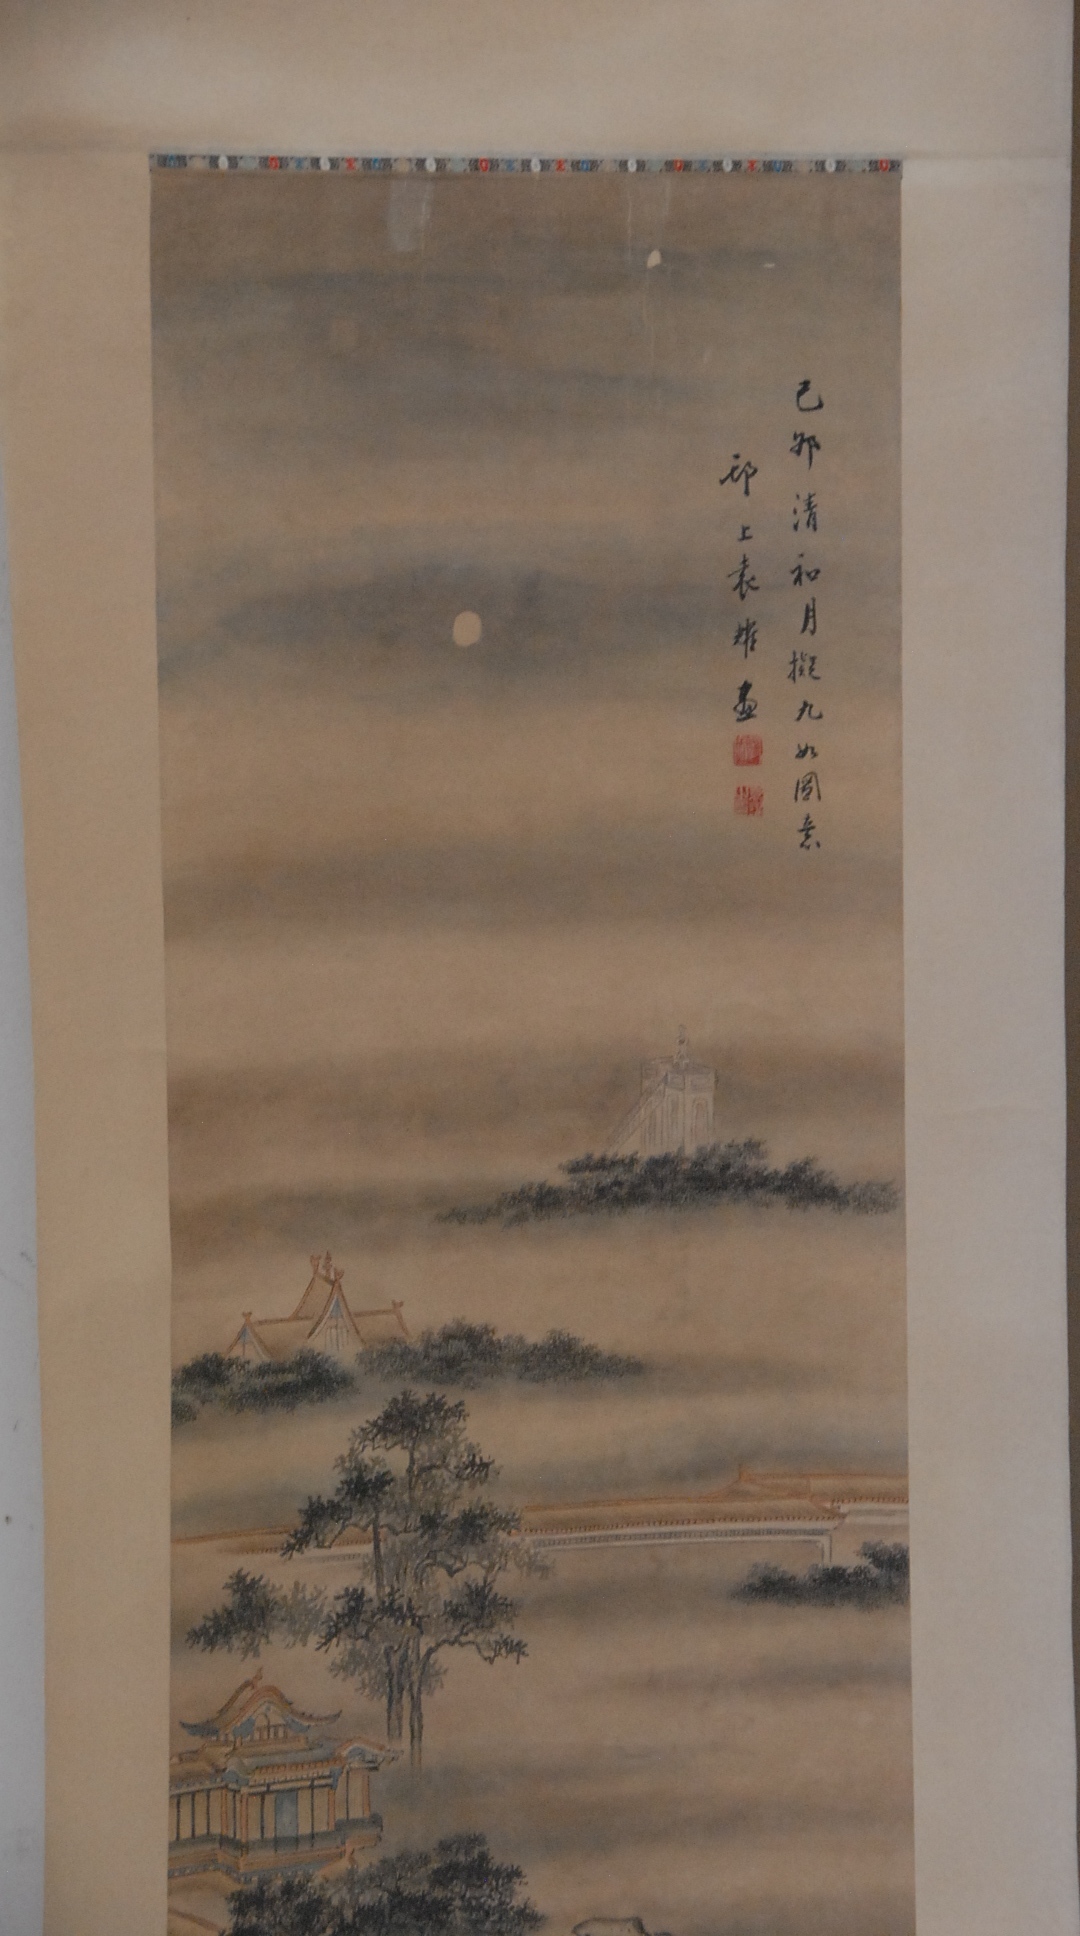 己卯清和月擬九如圖意
邗上袁耀畫